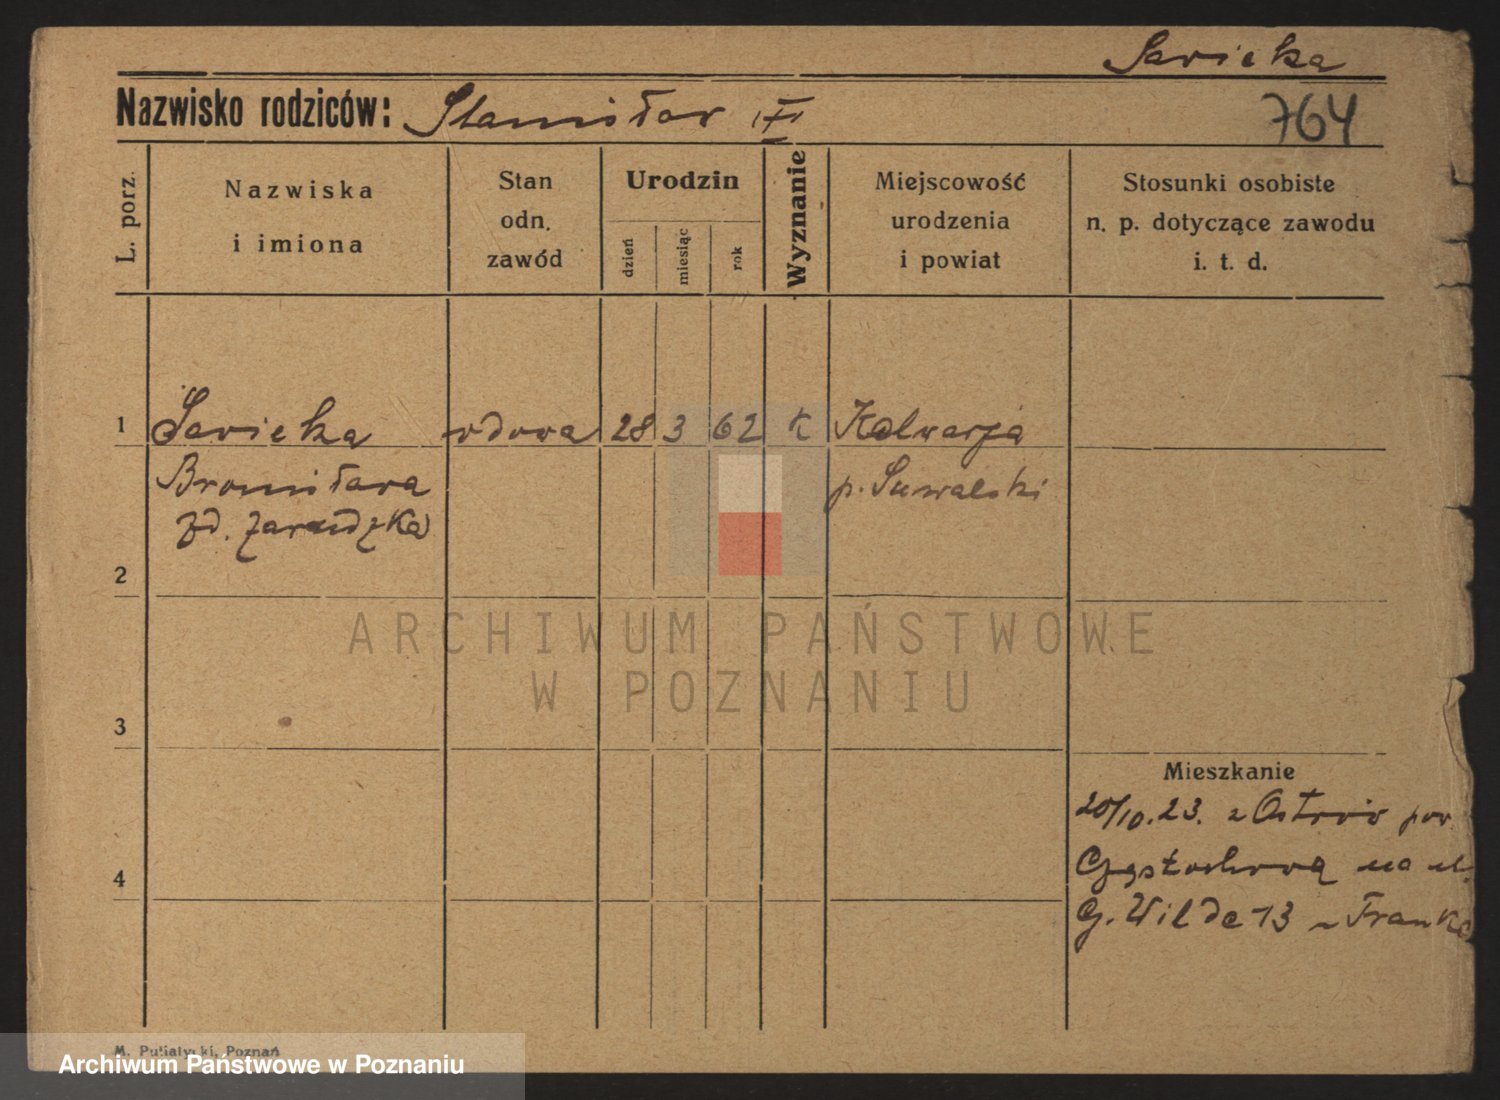 Savicka
Nazwisko rodziców: Stanisław
764
L. porz.
Nazwiska
i imiona
Stan
odn.
zawód
Urodzin
dzień
miesiąc
rok
Wyznanie
Miejscowość
urodzenia
i powiat
Stosunki osobiste
n. p. dotyczące zawodu
i. t. d.
1 Savicka wdowa 28 3 62 K Kalwarja
Bronisława p. Suwalski
zd.
2
3
Mieszkanie
20/10.23. z Ostrów pow
4 Częstochowa na ul.
G. Wilde 13 Franke
ARCHIWUM PAŃSTWOWE
W POZNANIU
M. Putiatycki, Poznań
Archiwum Państwowe w Poznaniu